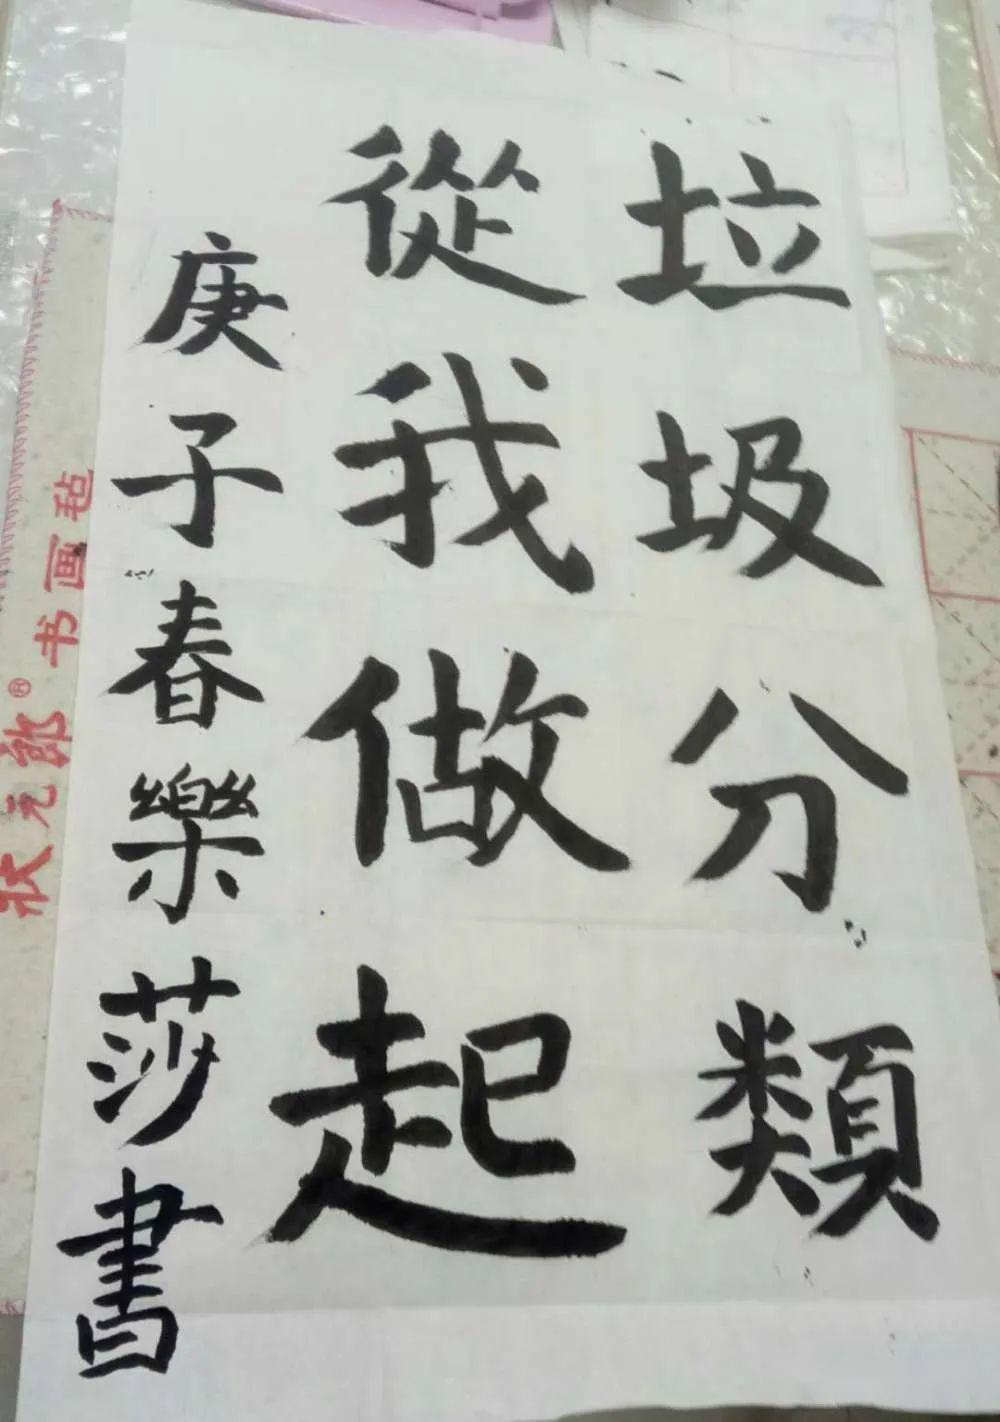 垃圾分類
從我做起
庚子春樂莎書
状元郎®书画毡